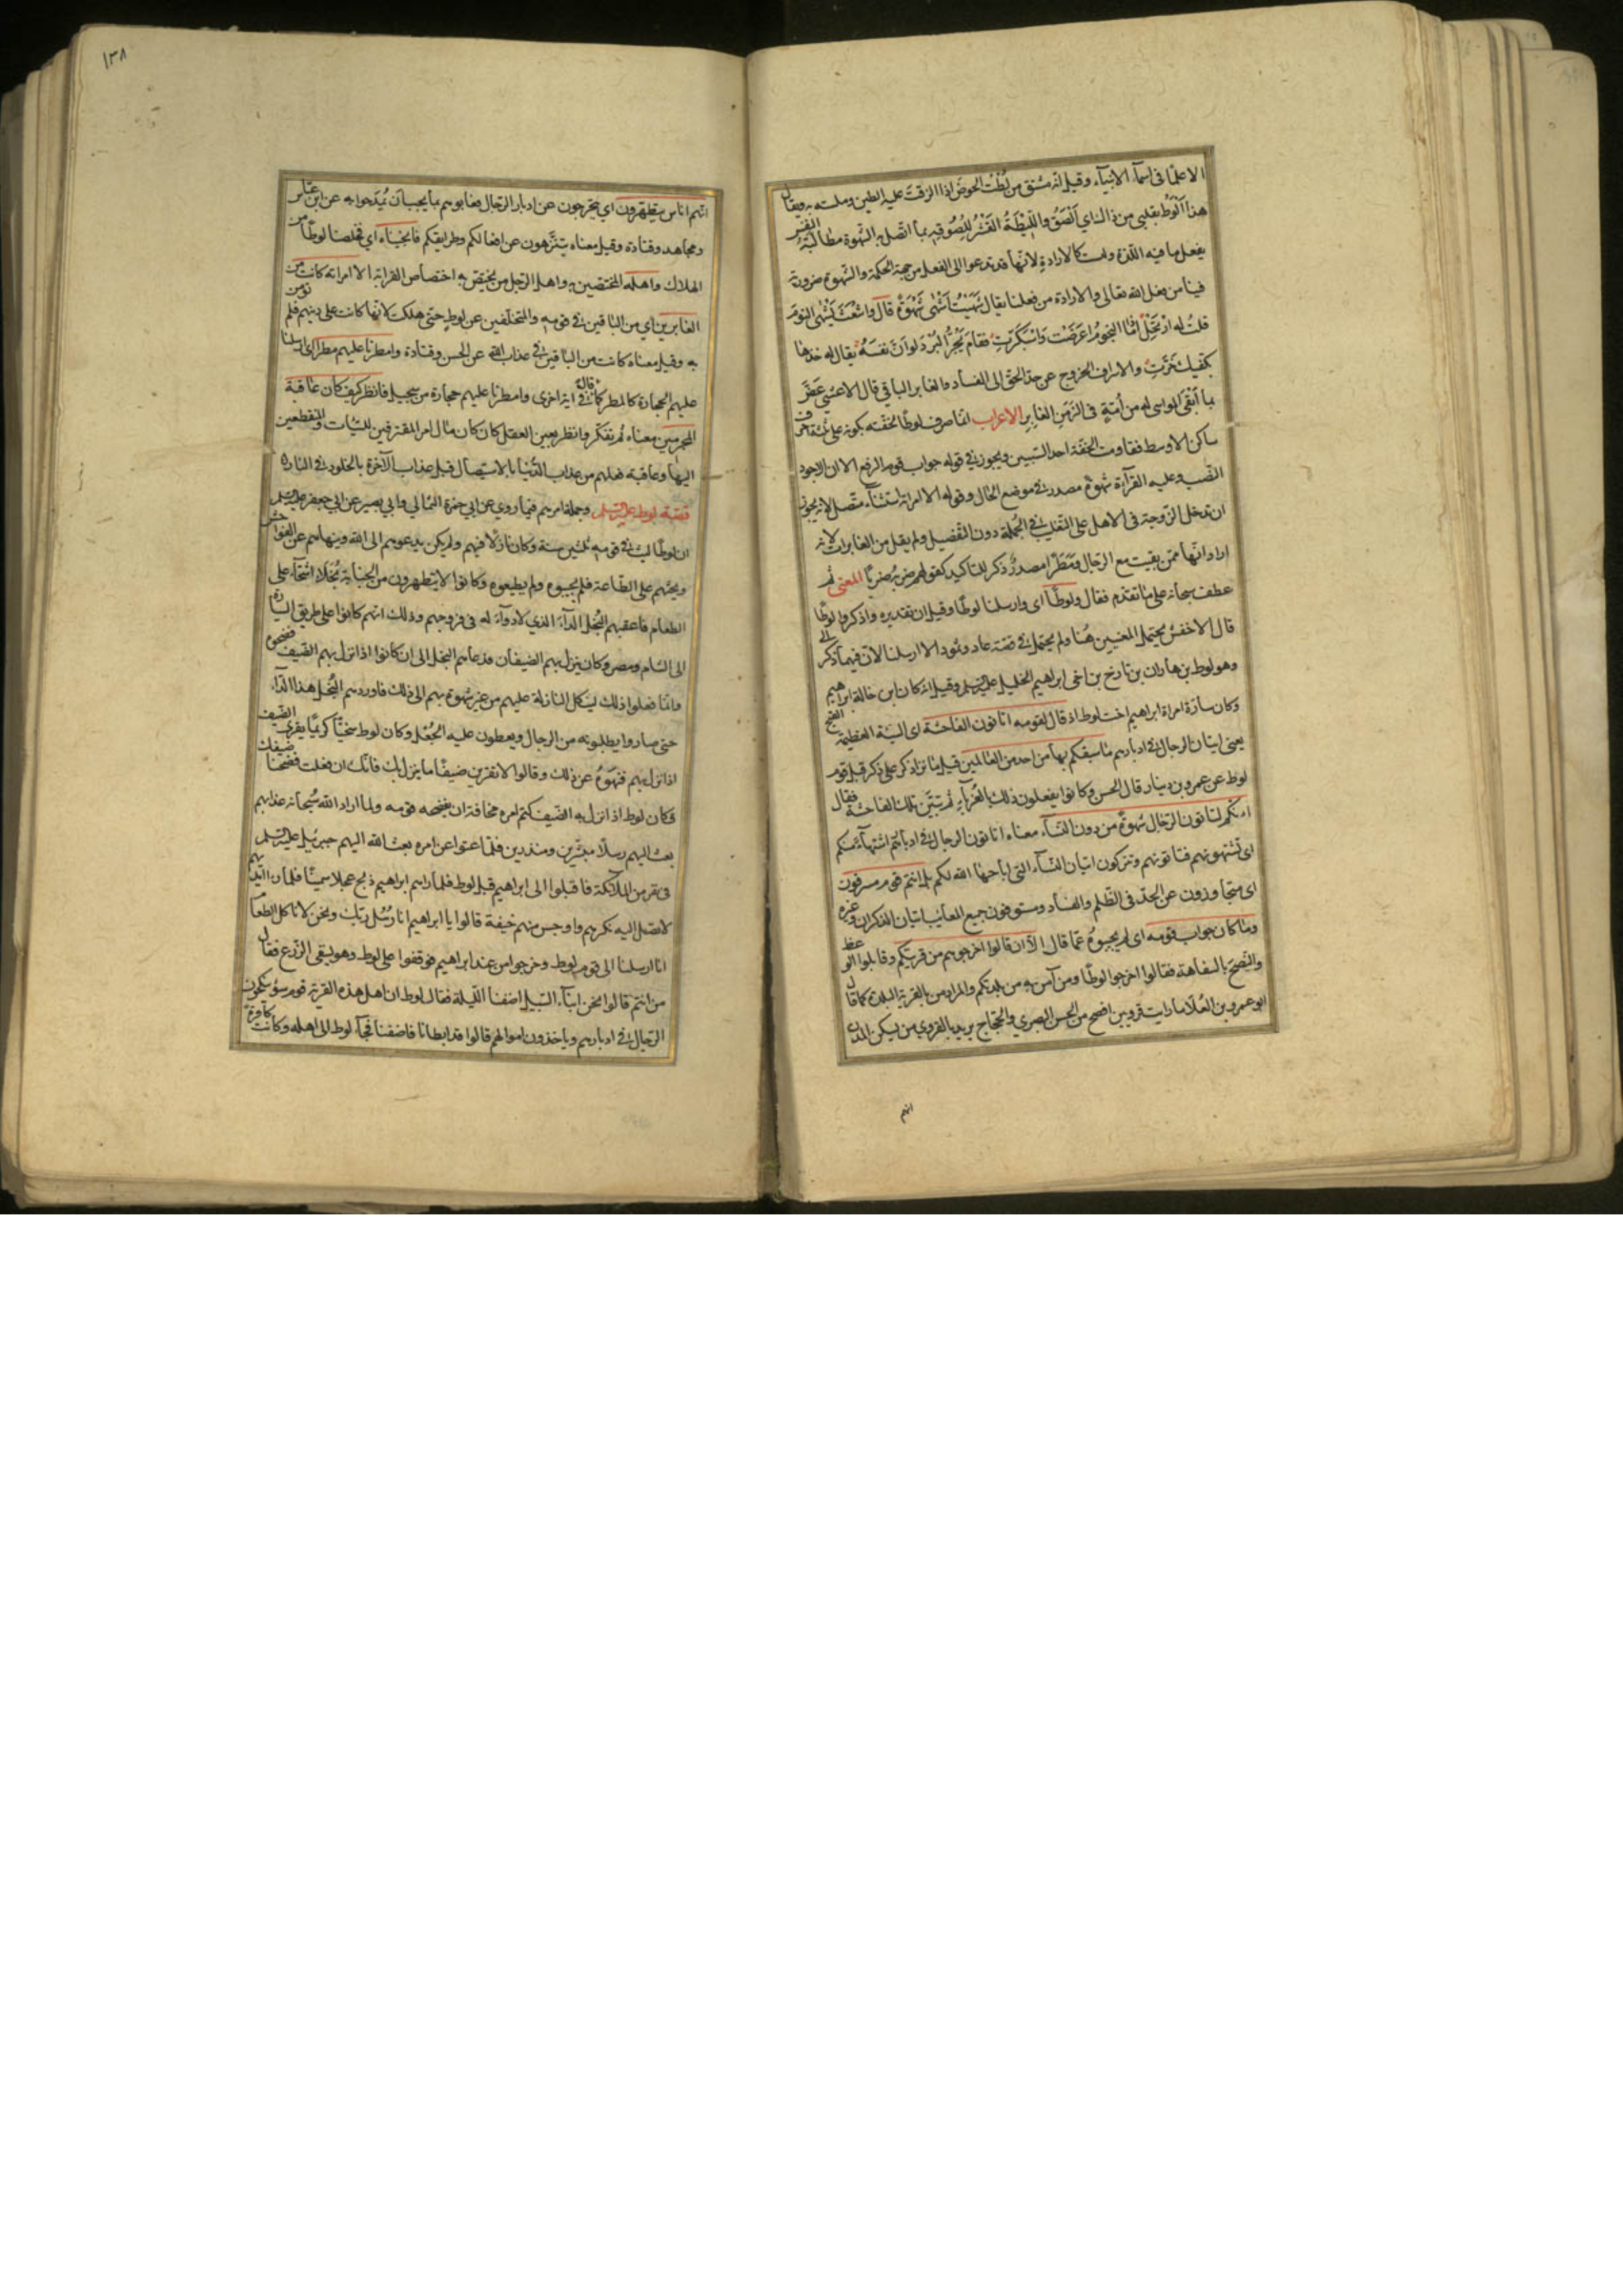 الاعلام فى اسماء الانبياء وقيل انه مشتق من لطت الحوض اذا الزقت عليه الطين وملسته به ويقال
هذا الوط بقلبى من ذاك اى الصق والليطة القشر للصوقه بما اتصل به الشهوة مطالبة النفس
بفعل ما فيه اللذة وليست كالارادة لانها قد تدعو الى الفعل من جهة الحكمة والشهوة ضرورية
فينا من فعل الله تعالى والارادة من فعلنا يقال شهيت اشهى شهوة قال واشعث يشهى النوم
قلت له ارتحل اذا ما النجوم اعرضت واسبكرت فقام يجر البرد لو ان نفسه يقال له خذها
بكفيك خرت والاسراف الخروج عن حد الحق الى الفساد والغابر الباقي قال الاعشى عض
بما ابقى المواسى له من امه فى الزمن الغابر الاعراب انما صرف لوطا لخفته بكونه على ثلثة احرف
ساكن الاوسط فقاومت الخفة احد السببين ويجوز فى قوله جواب قومه الرفع الا ان الاجود
النصب وعليه القراءة شهوة مصدر فى موضع الحال وقوله الا امراته استثناء متصل لانه يجوز
ان تدخل الزوجة فى الاهل على التغليب فى الجملة دون التفصيل ولم يقل من الغابرات لانه
اراد انها ممن بقيت مع الرجال ومطرا مصدر ذكر للتاكيد كقولهم ضربه ضربا المعنى ثم
عطف سبحانه على ما تقدم فقال ولوطا اى وارسلنا لوطا وقيل ان تقديره واذكر لوطا
قال الاخفش يحتمل المعنيين هنا ولم يحتمل فى قصة عاد وثمود الا ارسلنا لان فيها ذكر الى
وهو لوط بن هاران بن تارخ بن اخى ابراهيم الخليل عليه السلم وقيل انه كان ابن خالة ابراهيم
وكان سارة امراة ابراهيم اخت لوط اذ قال لقومه اتاتون الفاحشة اى السيئة العظيمة القبح
يعنى اتيان الرجال فى ادبارهم ما سبقكم بها من احد من العالمين قيل ما نزا ذكر على ذكر قبل قوم
لوط عن عمرو بن دينار قال الحسن وكانوا يفعلون ذلك بالغرباء ثم تبين تلك الفاحشة فقال
ائنكم لتاتون الرجال شهوة من دون النساء معناه اتاتون الرجال فى ادبارهم اشتهاء منكم
اى تشتهونهم فتاتونهم وتتركون اتيان النساء التى اباحها الله لكم بل انتم قوم مسرفون
اى متجاوزون عن الحد فى الظلم والفساد ومستوفون جميع المعائب اتيان الذكران وغيره
وما كان جواب قومه اى لم يجيبوه عما قال الا ان قالوا اخرجوهم من قريتكم وقابلوا الوعظ
والنصح بالسفاهة فقالوا اخرجوا لوطا ومن آمن به من بلدتكم والمراد من بالقرية البلدة كما قال
ابو عمرو بن العلا ما رايت قرويين افصح من الحسن البصري والحجاج يريد بالقروى من يسكن المدن
انهم
١٣٨
انهم اناس يتطهرون اي يتحرجون عن ادبار الرجال فعابوهم بما يجب ان يمدحوا به عن ابن عباس
ومجاهد وقتادة وقيل معناه يتنزهون عن افعالكم وطرايقكم فانجيناه اي فخلصنا لوطا من
الهلاك واهله المختصين به واهل الرجل من يختص به اختصاص القرابة الا امراته كانت من
الغابرين اي من الباقين فى قومه والمتخلفين عن لوط حتى هلكت لانها كانت على دينهم فلم تومن
به وقيل معناه كانت من الباقين فى عذاب الله عن الحسن وقتادة وامطرنا عليهم مطرا اى ارسلنا
عليهم الحجارة كالمطر كما قال فى اية اخرى وامطرنا عليهم حجارة من سجيل فانظر كيف كان عاقبة
المجرمين معناه ثم تفكر وانظر بعين العقل كيف كان مال امر المقترفين للسيئات والمنقطعين
اليها وعاقبة فعلهم من عذاب الدنيا بالاستيصال قبل عذاب الآخرة بالخلود فى النار
قصة لوط عليه السلم وجملة امرهم فيما روي عن ابي حمزة الثمالي وابي بصير عن ابي جعفر عليه السلم
ان لوطا لبث فى قومه ثلثين سنة وكان نازلا فيهم ولم يكن منهم يدعوهم الى الله وينهاهم عن الفواحش
ويحثهم على الطاعة فلم يجيبوه ولم يطيعوه وكانوا لا يتطهرون من الجنابة بخلاء اشحاء على
الطعام فاعقبهم البخل الداء الذي لا دواء له فى فروجهم وذلك انهم كانوا على طريق السيارة
الى الشام ومصر وكان ينزل بهم الضيفان فدعاهم البخل الى ان كانوا اذا نزل بهم الضيف فضحوه
وانما فعلوا ذلك لينكل النازلة عليهم من غير شهوة بهم الى ذلك فاوردهم البخل هذا الداء
حتى صاروا يطلبونه من الرجال ويعطون عليه الجعل وكان لوط سخيا كريما يقرى الضيف
اذا نزل بهم فنهوه عن ذلك وقالوا لا تقرين ضيفا ما ينزل بك فانك ان فعلت فضحنا ضيفك
وكان لوط اذا نزل به الضيف كتم امره مخافة ان يفضحه قومه ولما اراد الله سبحانه عذابهم
بعث اليهم رسلا مبشرين ومنذرين فلما عتوا عن امره بعث الله اليهم جبرئيل عليه السلم
فى نفر من الملائكة فاقبلوا الى ابراهيم قبل لوط فلما راهم ابراهيم ذبح عجلا سمينا فلما راى ايديهم
لا تصل اليه نكرهم واوجس منهم خيفة قالوا يا ابراهيم انا رسل ربك ونحن لا ناكل الطعام
انا ارسلنا الى قوم لوط وخرجوا من عند ابراهيم فوقفوا على لوط وهو يسقى الزرع فقال
من انتم قالوا نحن ابناء السبيل اضفنا الليلة فقال لوط ان اهل هذه القرية قوم سوء ينكحون
الرجال فى ادبارهم وياخذون اموالهم قالوا قد ابطانا فاضفنا فجاء لوط الى اهله وكانت كافرة